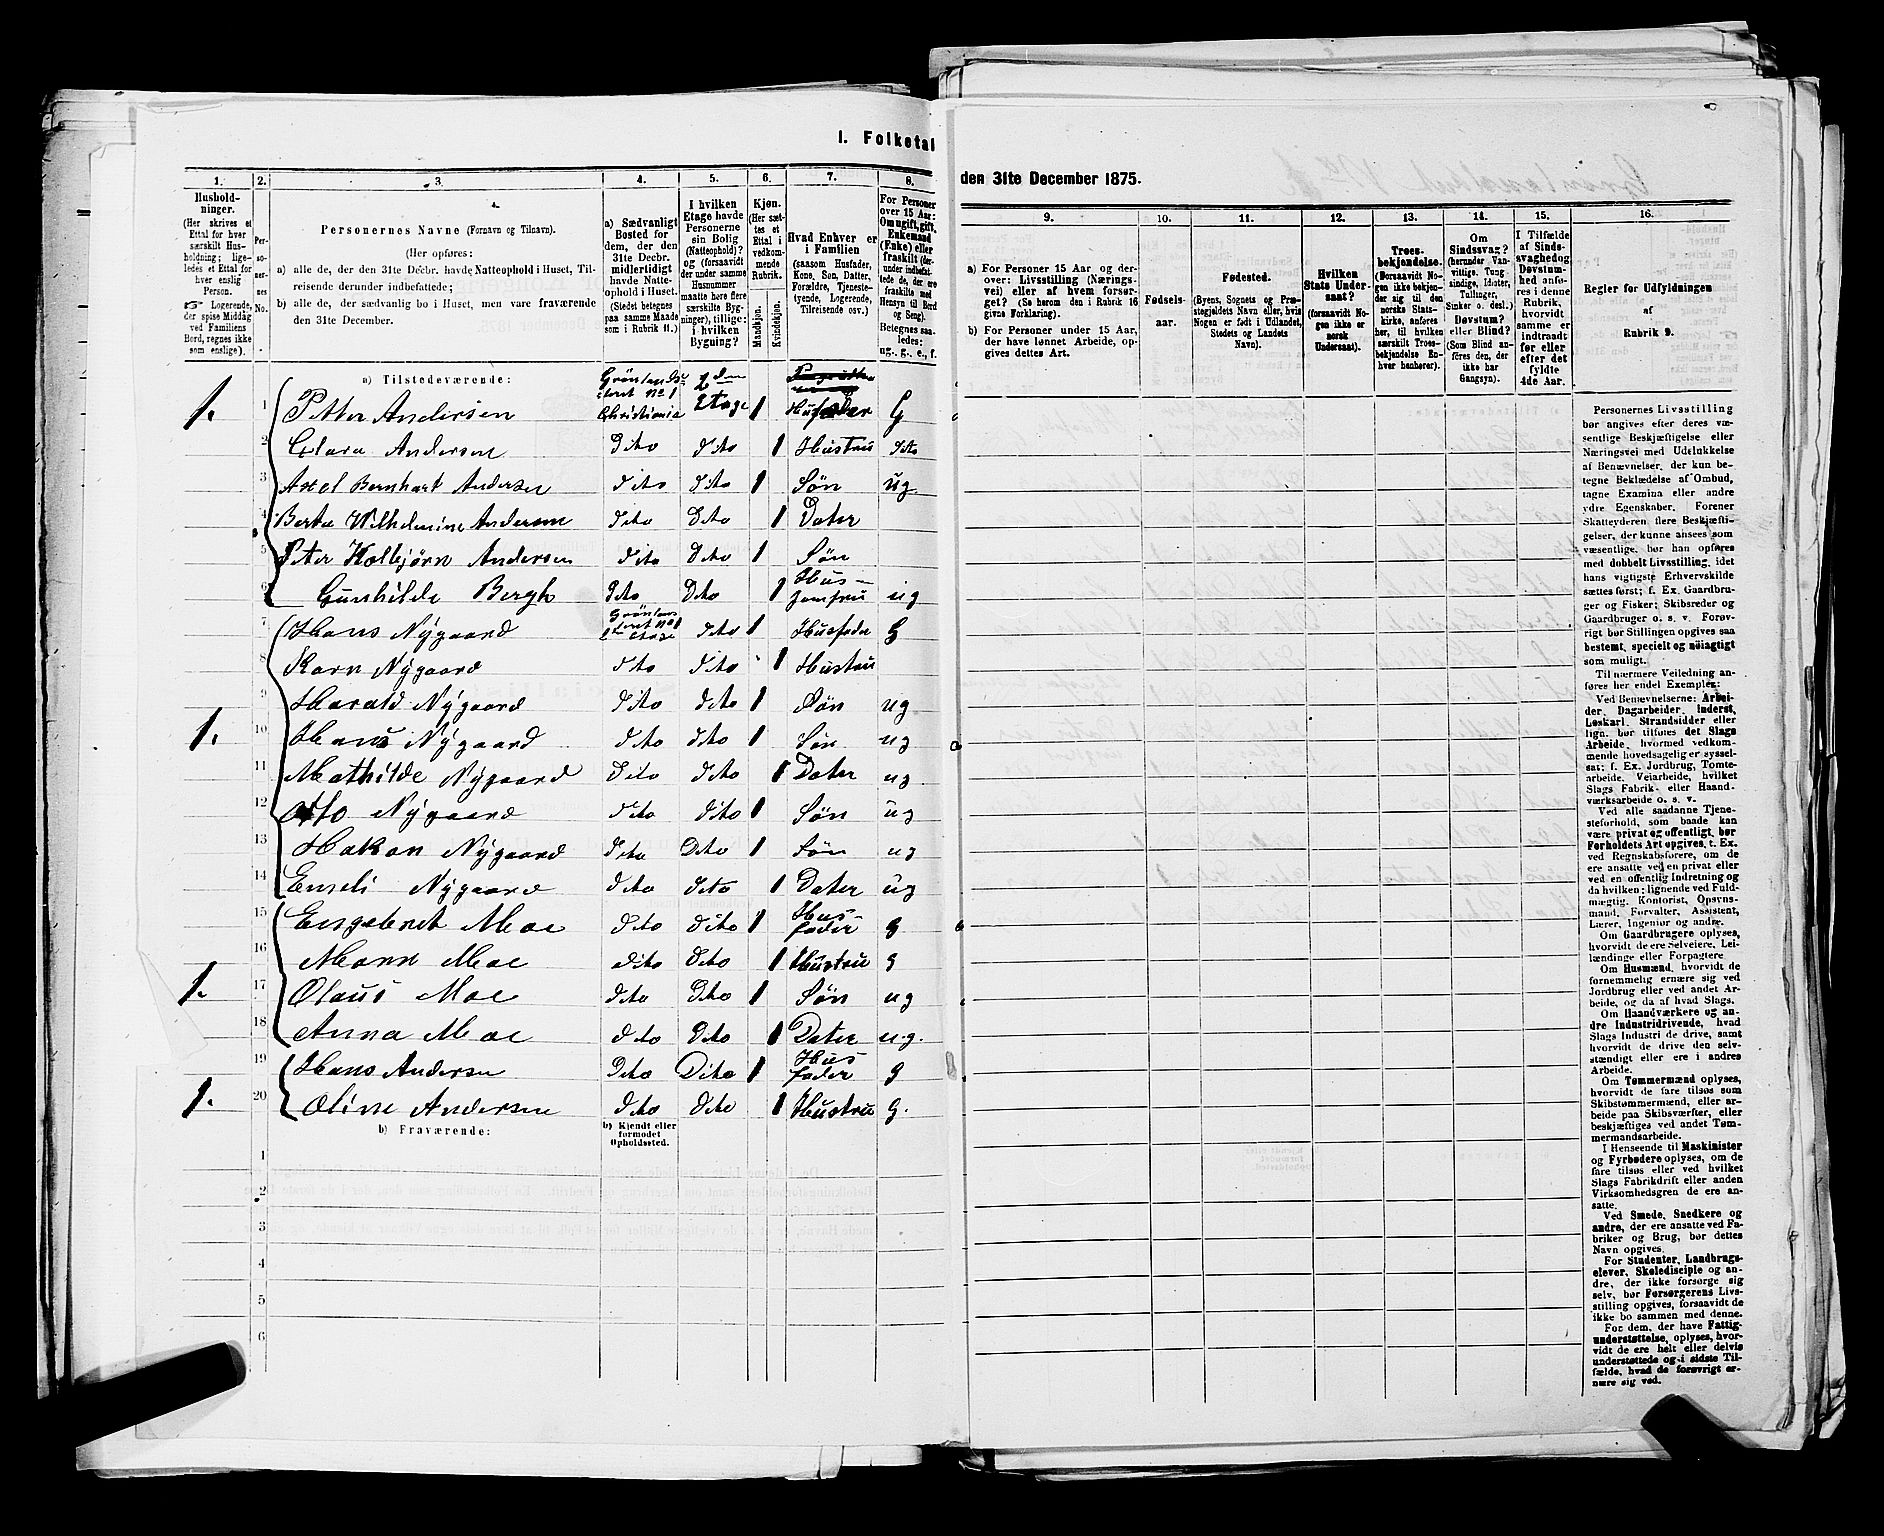 I. Folketal
den 31te December 1875.
1.
Husholdninger.
(Her skrives et
Ettal for hver
særskilt Husholdning;
ligeledes et Ettal for
hver enslig
Person.
☞ Logerende,
der spise Middag
ved Familiens
Bord, regnes ikke
som enslige).
2.
Personernes
No.
3.
Personernes Navne (Fornavn og Tilnavn).
(Her opføres:
a) alle de, der den 31te Decbr. havde Natteophold i Huset, Tilreisende derunder indbefattede;
b) alle de, der sædvanlig bo i Huset, men vare fraværende
den 31te December.
4.
a) Sædvanligt
Bosted for
dem, der den
31te Decbr.
midlertidigt
havde Natteophold
i Huset.
(Stedet betegnes
paa samme Maade
som i Rubrik 11.)
5.
I hvilken
Etage havde
Personerne
sin Bolig
(Natteophold)?
og (forsaavidt
der under samme
Husnummer
maatte høre flere
særskilte Bygninger),
tillige:
i hvilken
Bygning?
6.
Kjøn.
(Her sættes et
Ettal i
vedkommende
Rubrik.
Mandkjøn.
Kvindekjøn.
7.
Hvad Enhver er
i Familien
(saasom Husfader,
Kone, Søn, Datter,
Forældre, Tjenestetyende,
Logerende,
Tilreisende osv.)
8.
For Personer
over 15 Aar:
Om ugift, gift,
Enkemand
(Enke) eller
fraskilt
Betegnes saaledes:
ug., g., e., f.
9.
a) For Personer 15 Aar og derover:
Livsstilling (Næringsvei)
eller af hvem forsørget?
(Se herom den i Rubrik 16
givne Forklaring).
b) For Personer under 15 Aar,
der have lønnet Arbeide, opgives
dettes Art.
10.
Fødselsaar.
11.
Fødested.
(Byens, Sognets og Præstegjeldets
Navn eller, hvis
Nogen er født i Udlandet,
Stedets og Landets
Navn).
12.
Hvilken
Stats Undersaat?
(forsaavidt Nogen
ikke er
norsk
Undersaat).
13.
Troesbekjendelse.
(Forsaavidt Nogen
ikke bekjender
sig til den
norske Statskirke,
anføres
her, til hvilken
særskilt Troesbekjendelse
Enhver
henhører).
14.
Om
Sindssvag?
(herunder Vanvittige,
Tungsindige,
Idioter,
Tullinger,
Sinker o. desl.)
Døvstum?
eller Blind?
(Som Blind anføres
den, der
ikke har
Gangsyn).
15.
I Tilfælde
af Sindssvaghed
og
Døvstumhed
anføres
i denne
Rubrik,
hvorvidt
samme er
indtraadt
før eller
efter det
fyldte
4de Aar.
16.
Regler for Udfyldningen
af
Rubrik 9.
a) Tilstedeværende:
1. 1 Petter Andersen Grönlandsleret No 1 Christiania 2den Etage 1 Husfader G
2 Clara Andersen Dito dito 1 Hustru dito
3 Axel Bernhart Andersen dito dito 1 Søn ug.
4 Berta Wilhelmine Andersen dito Dito 1 Dater
5 Peter Kolbjørn Andersen dito Dito 1 Søn
6 Gunhilde Bergh Dito Dito 1 Husjomfru ug
7 Hans Nygaard dito 1 Husfader G
8 Karn Nygaard dito dito 1 Hustru
9 Harald Nygaard dito dito 1 Søn ug
1. 10 Hans Nygaard dito dito 1 Søn ug
11 Mathilde Nygaard Dito dito 1 Dater ug
12 Otto Nygaard dito dito 1 Søn ug
13 Hakon Nygaard dito Dito 1 Søn ug
14 Emeli Nygaard dito dito 1 Dater ug
15 Engebret Moe dito dito 1 Husfader g
16 Marin Moe dito Dito 1 Hustru g
1. 17 Olaus Moe dito Dito 1 Søn ug
18 Anna Moe dito Dito 1 Dater ug.
19 Hans Andersen Dito Dito 1 Husfader g
1. 20 Oline Andersen dito dito 1 Hustru G.
b) Fraværende:
b) Kjendt eller
formodet
Opholdssted.
1
2
3
4
5
6
Personernes Livsstilling
bør angives efter deres væsentlige
Beskjæftigelse eller
Næringsvei med Udelukkelse
af Benævnelser, der kun betegne
Beklædelse af Ombud,
tagne Examina eller andre
ydre Egenskaber. Forener
Skatteyderen flere Beskjæftigelser,
der kunne ansees som
væsentlige, bør han opføres
med dobbelt Livsstilling, idet
hans vigtigste Erhvervskilde
sættes først; f. Ex. Gaardbruger
og Fisker; Skibsreder og
Gaardbruger o. s. v. Forøvrigt
bør Stillingen opgives saa
bestemt, specielt og nøiagtigt
som muligt.
Til nærmere Veiledning anføres
her endel Exempler:
Ved Benævnelserne: Arbeider,
Dagarbeider, Inderst,
Løskarl, Strandsidder eller
lign. bør tilføies det Slags
Arbeide, hvormed vedkommende
hovedsagelig er sysselsat;
f. Ex. Jordbrug, Tomtearbeide,
Veiarbeide, hvilket
Slags Fabrik- eller Haandværksarbeide
o. s. v.
Ved alle saadanne Tjenesteforhold,
som baade kan
være privat og offentligt, bør
Forholdets Art opgives, t. Ex.
ved Regnskabsførere, om de
ere ansatte ved en privat eller
ved en offentlig Indretning og
da hvilken; lignende ved Fuldmægtig,
Kontorist, Opsynsmand,
Forvalter, Assistent,
Lærer, Ingeniør og andre.
Om Gaardbrugere oplyses,
hvorvidt de ere Selveiere, Leilændinge
eller Forpagtere.
Om Husmænd, hvorvidt de
fornemmelig ernære sig ved
Jordbrug eller ved andet Arbeide,
og da af hvad Slags.
Om Haandværkere og andre
Industridrivende, hvad
Slags Industri de drive, samt
hvorvidt de drive den selvstændigt
eller ere i andres
Arbeide.
Om Tømmermænd oplyses,
hvorvidt de fare tilsøs som
Skibstømmermænd, eller arbeide
paa Skibsværfter, eller
beskjæftiges ved andet Tømmermandsarbeide.
I Henseende til Maskinister
og Fyrbødere oplyses, om de
fare tilsøs eller ved hvilket
Slags Fabrikdrift eller anden
Virksomhedsgren de ere ansatte.
Ved Smede, Snedkere og
andre, der ere ansatte ved Fabriker
og Brug, bør dettes
Navn opgives.
For Studenter, Landbrugselever,
Skoledisciple og andre,
der ikke forsørge sig
selv, bør Forsørgerens Livsstilling
opgives, forsaavidt de
ikke bo sammen med denne.
For dem, der have Fattigunderstøttelse,
oplyses, hvorvidt
de ere helt eller delvis
understøttede og i sidste Tilfælde,
hvad de forøvrigt ernære
sig ved.